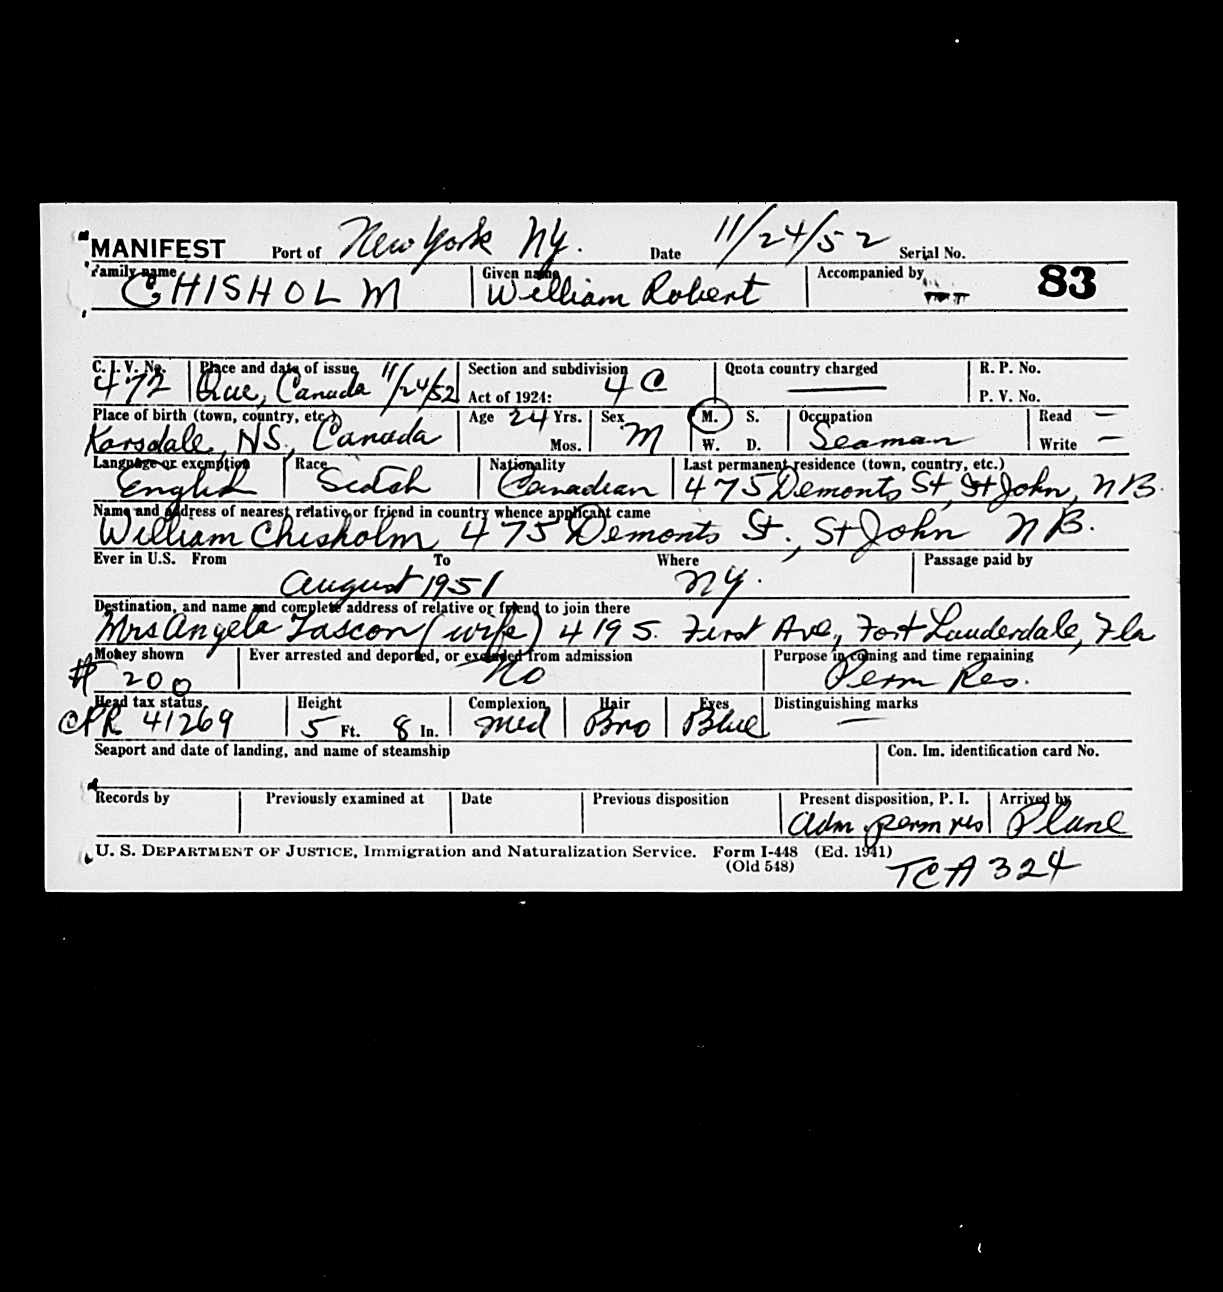 MANIFEST Port of New York NY. Date 11/24/52 Serial No.
Family name CHISHOLM Given name William Robert Accompanied by 83
C. I. V. No. 472 Place and date of issue Que, Canada 11/24/52 Section and subdivision Act of 1924: 4 C Quota country charged — R. P. No.
P. V. No.
Place of birth (town, country, etc.) Karsdale, NS, Canada Age 24 Yrs. Mos. Sex M M. S. W. D. Occupation Seaman Read — Write —
Language or exemption English Race Scotch Nationality Canadian Last permanent residence (town, country, etc.) 475 Demonts St, St John, NB.
Name and address of nearest relative or friend in country whence applicant came
William Chisholm, 475 Demonts St., St John NB.
Ever in U.S. From To Where Passage paid by
August 1951 NY.
Destination, and name and complete address of relative or friend to join there
Mrs Angela Tascon (wife) 419 S. First Ave, Fort Lauderdale, Fla
Money shown $ 200 Ever arrested and deported, or excluded from admission No Purpose in coming and time remaining Perm Res.
Head tax status CPR 41269 Height 5 Ft. 8 In. Complexion Med Hair Bro Eyes Blue Distinguishing marks —
Seaport and date of landing, and name of steamship Con. Im. identification card No.
Records by Previously examined at Date Previous disposition Present disposition, P. I. Adm perm res Arrived by Plane
U. S. DEPARTMENT OF JUSTICE, Immigration and Naturalization Service. Form I-448 (Ed. 1941)
(Old 548) TCA 324